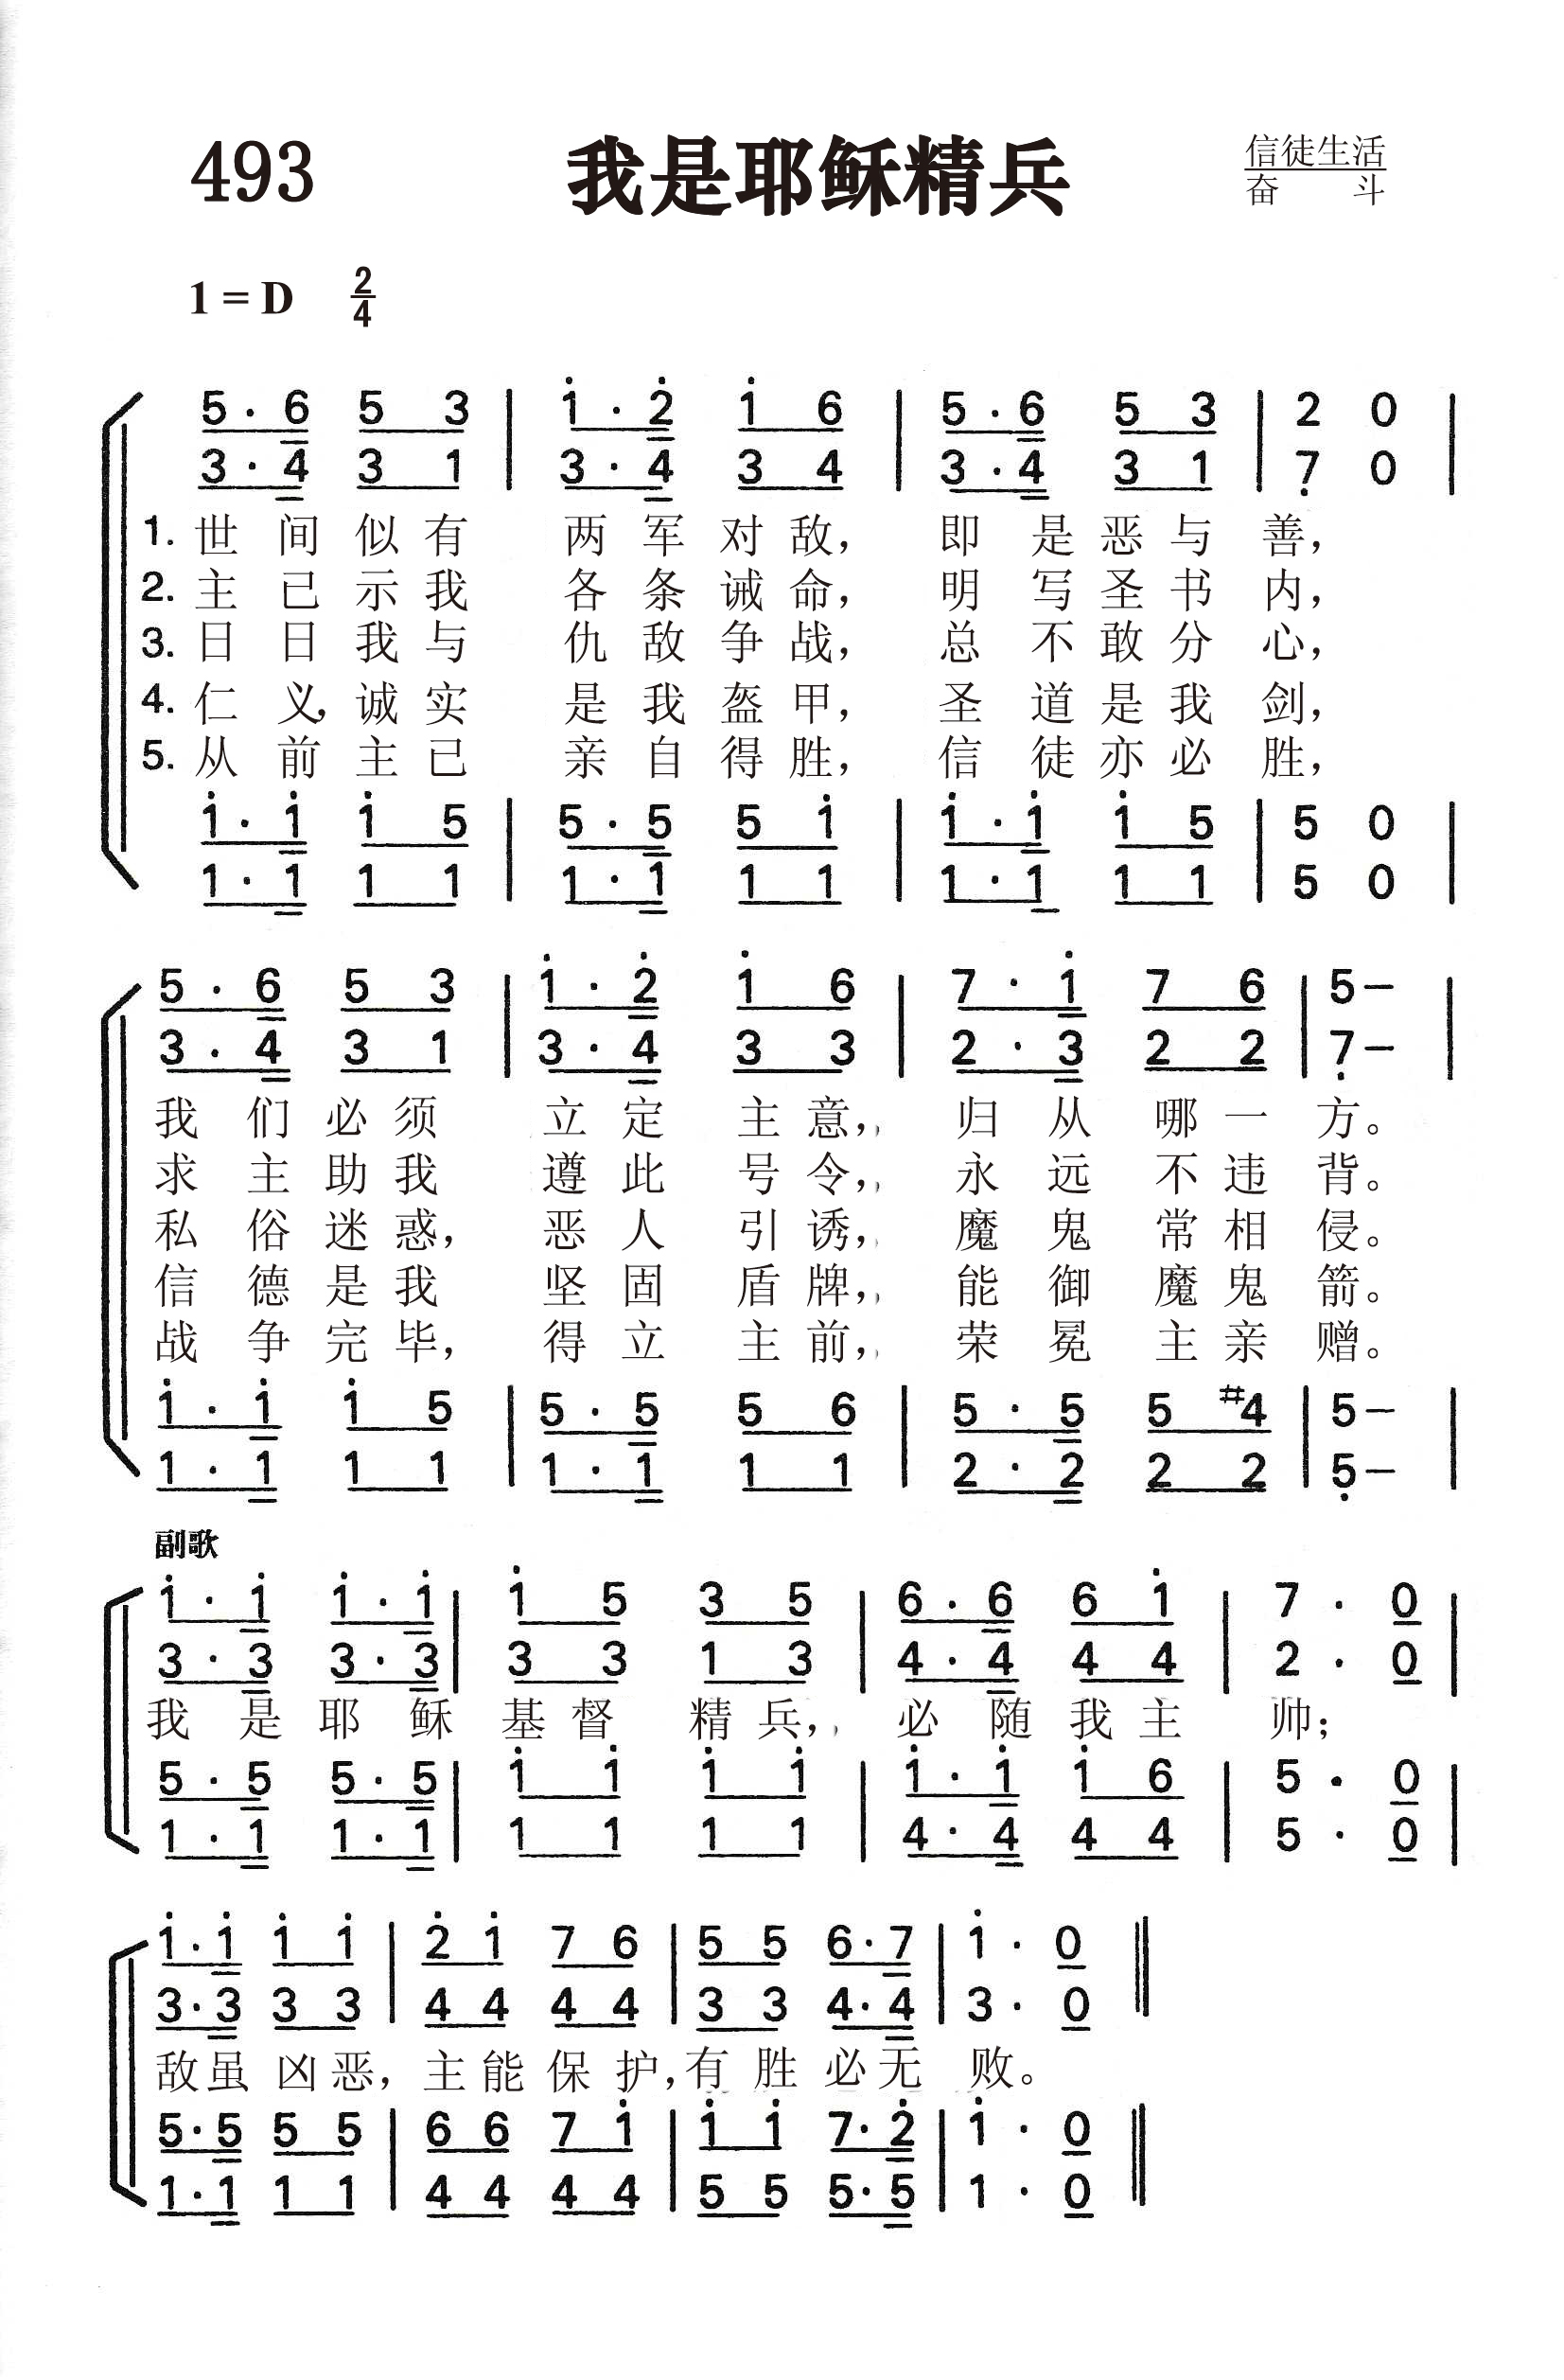 493 我是耶稣精兵 信徒生活
奋 斗
1 = D 2/4
5·6 5 3 | i·2̇ i 6 | 5·6 5 3 | 2 0 |
3·4 3 1 | 3·4 3 4 | 3·4 3 1 | 7̣ 0 |
1. 世间似有 两军对敌, 即是恶与善,
2. 主已示我 各条诫命, 明写圣书内,
3. 日日我与 仇敌争战, 总不敢分心,
4. 仁义,诚实 是我盔甲, 圣道是我剑,
5. 从前主已 亲自得胜, 信徒亦必胜,
i·i i 5 | 5·5 5 i | i·i i 5 | 5 0 |
1·1 1 1 | 1·1 1 1 | 1·1 1 1 | 5 0 |
5·6 5 3 | i·2̇ i 6 | 7·i 7 6 | 5 – |
3·4 3 1 | 3·4 3 3 | 2·3 2 2 | 7̣ – |
我们必须 立定主意, 归从哪一方。
求主助我 遵此号令, 永远不违背。
私俗迷惑, 恶人引诱, 魔鬼常相侵。
信德是我 坚固盾牌, 能御魔鬼箭。
战争完毕, 得立主前, 荣冕主亲赠。
i·i i 5 | 5·5 5 6 | 5·5 5 #4 | 5 – |
1·1 1 1 | 1·1 1 1 | 2·2 2 2 | 5̣ – |
副歌
i·i i·i | i 5 3 5 | 6·6 6 i | 7· 0 |
3·3 3·3 | 3 3 1 3 | 4·4 4 4 | 2· 0 |
我是耶稣 基督精兵, 必随我主帅;
5·5 5·5 | i i i i | i·i i 6 | 5· 0 |
1·1 1·1 | 1 1 1 1 | 4·4 4 4 | 5· 0 |
i·i i i | 2̇ i 7 6 | 5 5 6·7 | i· 0 ‖
3·3 3 3 | 4 4 4 4 | 3 3 4·4 | 3· 0 ‖
敌虽凶恶, 主能保护, 有胜必无败。
5·5 5 5 | 6 6 7 i | i i 7·2̇ | i· 0 ‖
1·1 1 1 | 4 4 4 4 | 5 5 5·5 | 1· 0 ‖